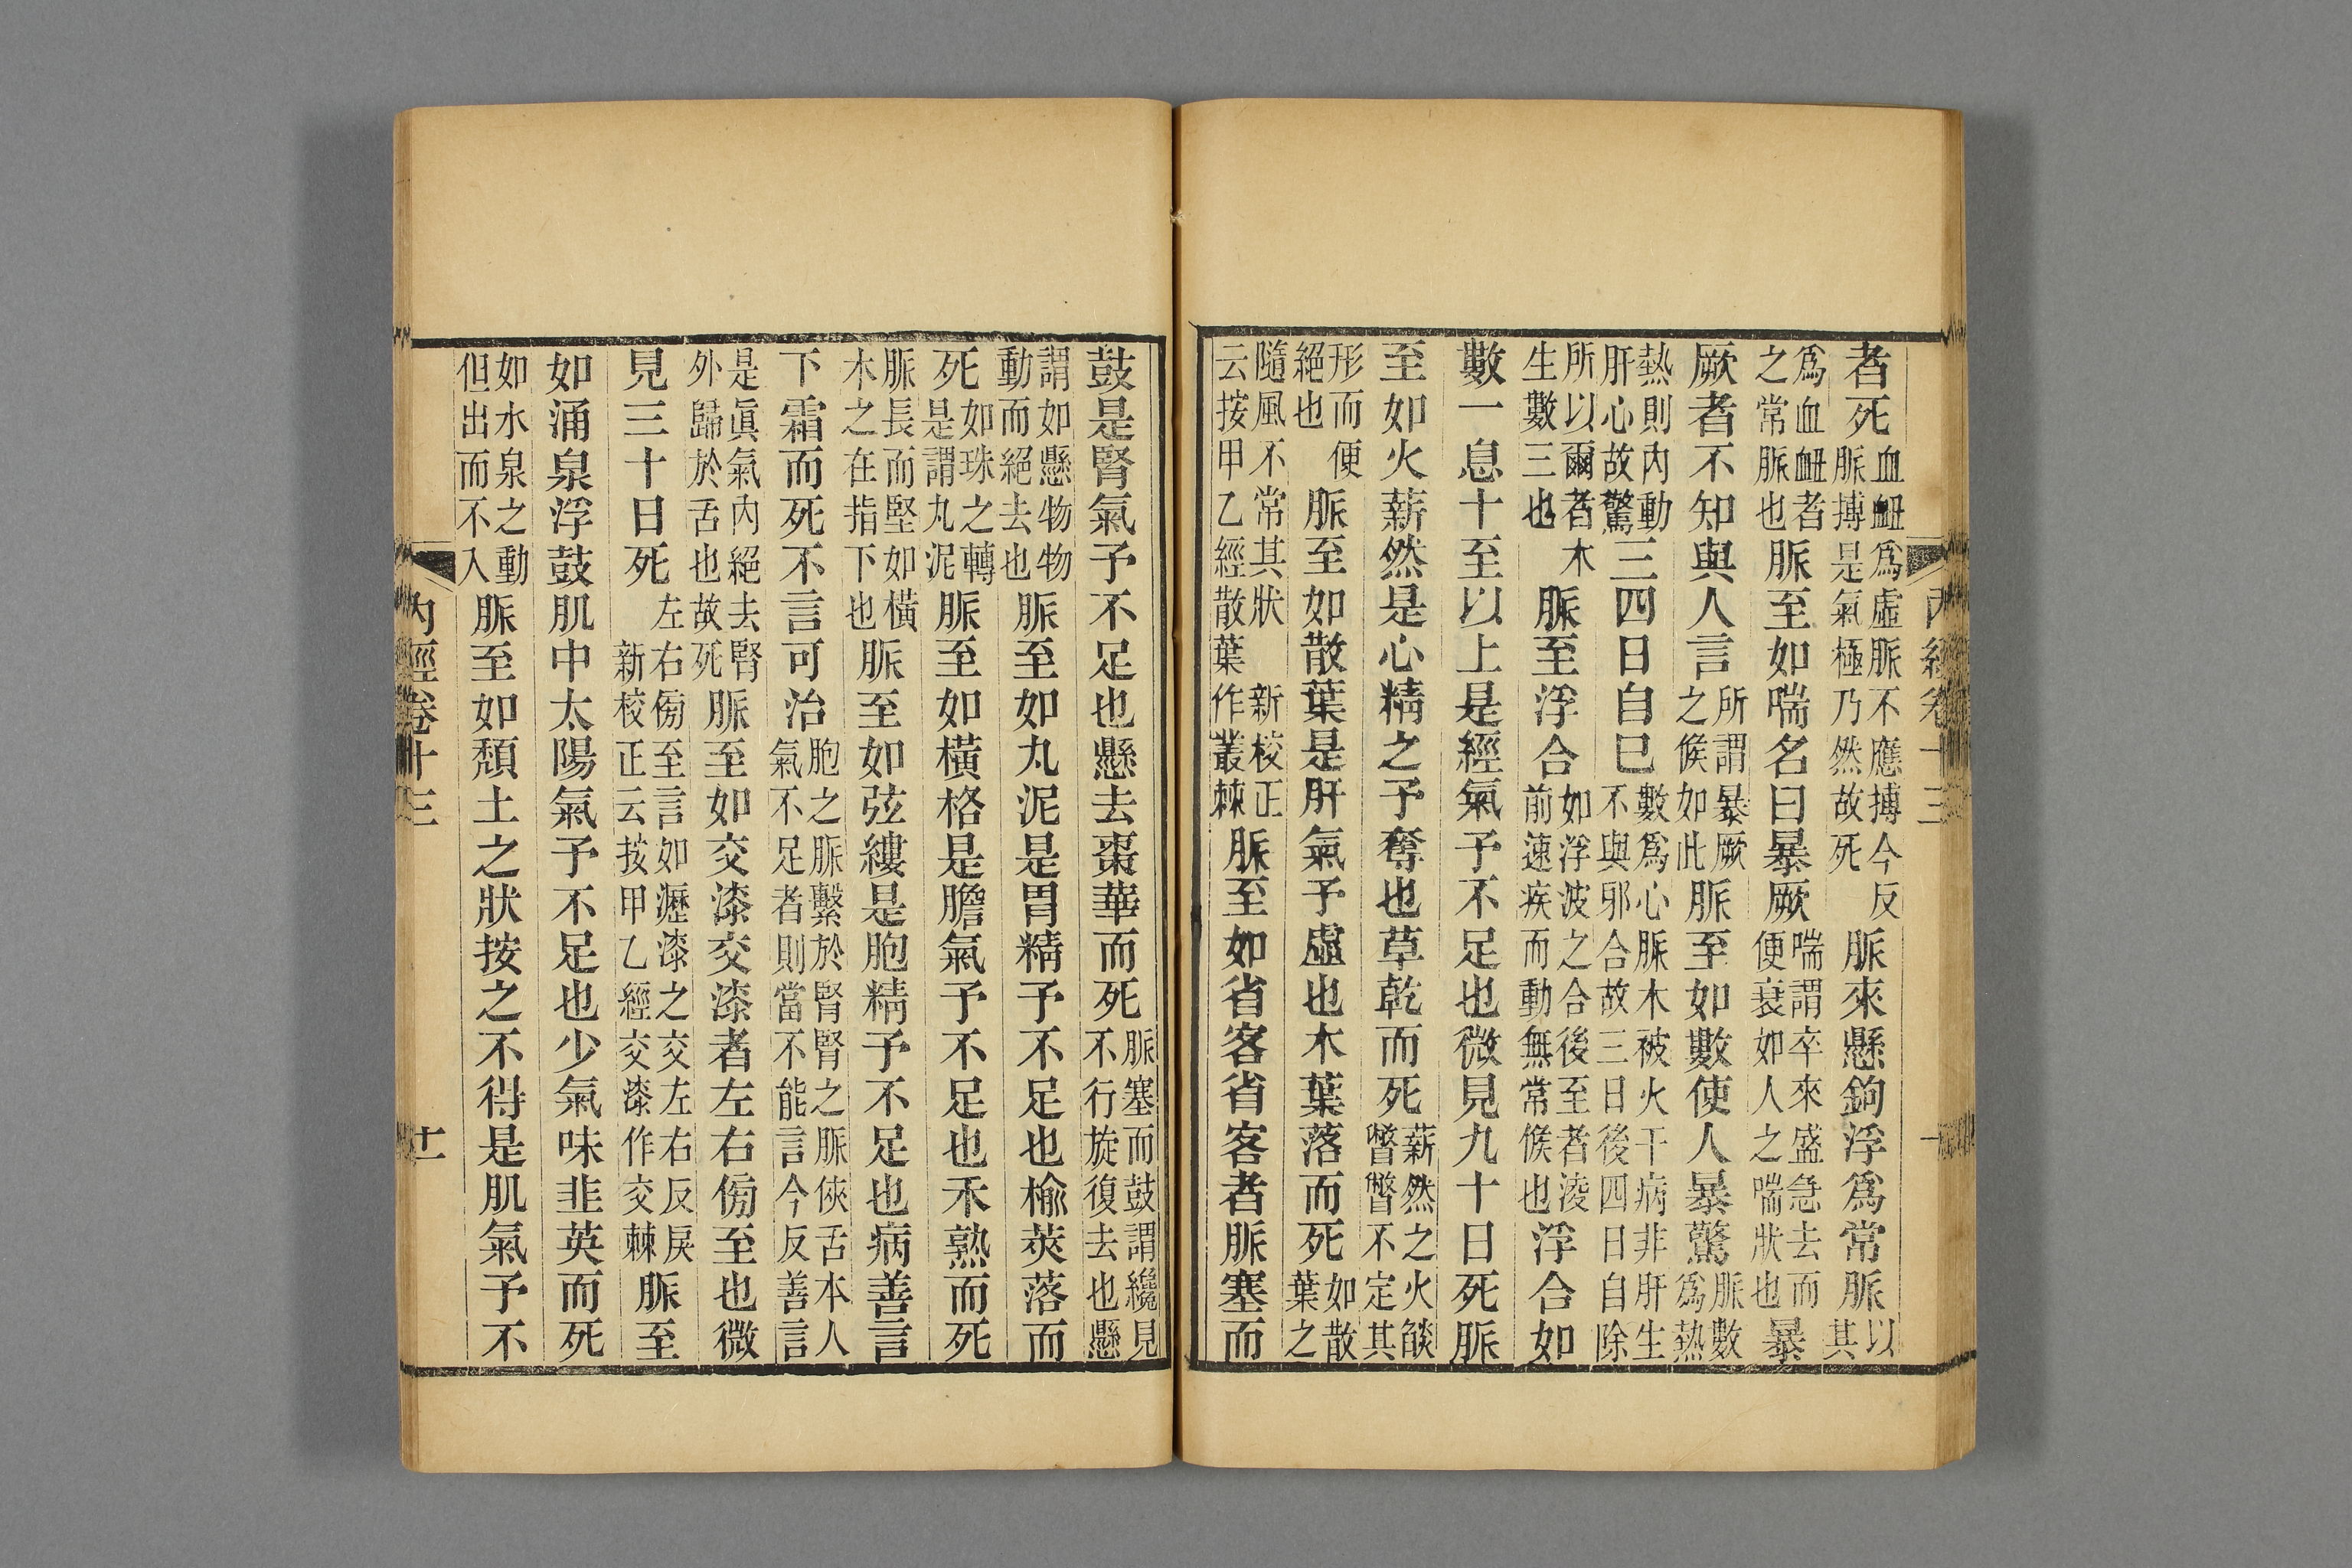 者死血衄爲虛脈不應搏今反脈搏是氣極乃然故死脈來懸鉤浮爲常脈以其
爲血衄者之常脈也脈至如喘名曰暴厥喘謂卒來盛急去而便衰如人之喘狀也暴
厥者不知與人言所謂暴厥之候如此脈至如數使人暴驚脈數爲熱
熱則內動肝心故驚三四日自巳數爲心脈木被火干病非肝生不與邪合故三日後四日自除
所以爾者木生數三也脈至浮合如浮波之合後至者淩前速疾而動無常候也浮合如
數一息十至以上是經氣予不足也微見九十日死脈
至如火薪然是心精之予奪也草乾而死薪然之火燄瞥瞥不定其
形而便絕也脈至如散葉是肝氣予虛也木葉落而死如散葉之
隨風不常其狀新校正云按甲乙經散葉作叢棘脈至如省客省客者脈塞而
鼓是腎氣予不足也懸去棗華而死脈塞而鼓謂纔見不行旋復去也懸
謂如懸物物動而絕去也脈至如丸泥是胃精予不足也榆莢落而
死如珠之轉是謂丸泥脈至如橫格是膽氣予不足也禾熟而死
脈長而堅如橫木之在指下也脈至如弦縷是胞精予不足也病善言
下霜而死不言可治胞之脈繫於腎腎之脈俠舌本人氣不足者則當不能言今反善言
是眞氣內絕去腎外歸於舌也故死脈至如交漆交漆者左右傍至也微
見三十日死左右傍至言如瀝漆之交左右反戾新校正云按甲乙經交漆作交棘脈至
如涌泉浮鼓肌中太陽氣予不足也少氣味韭英而死
如水泉之動但出而不入脈至如頹土之狀按之不得是肌氣予不
內經卷十三
十一